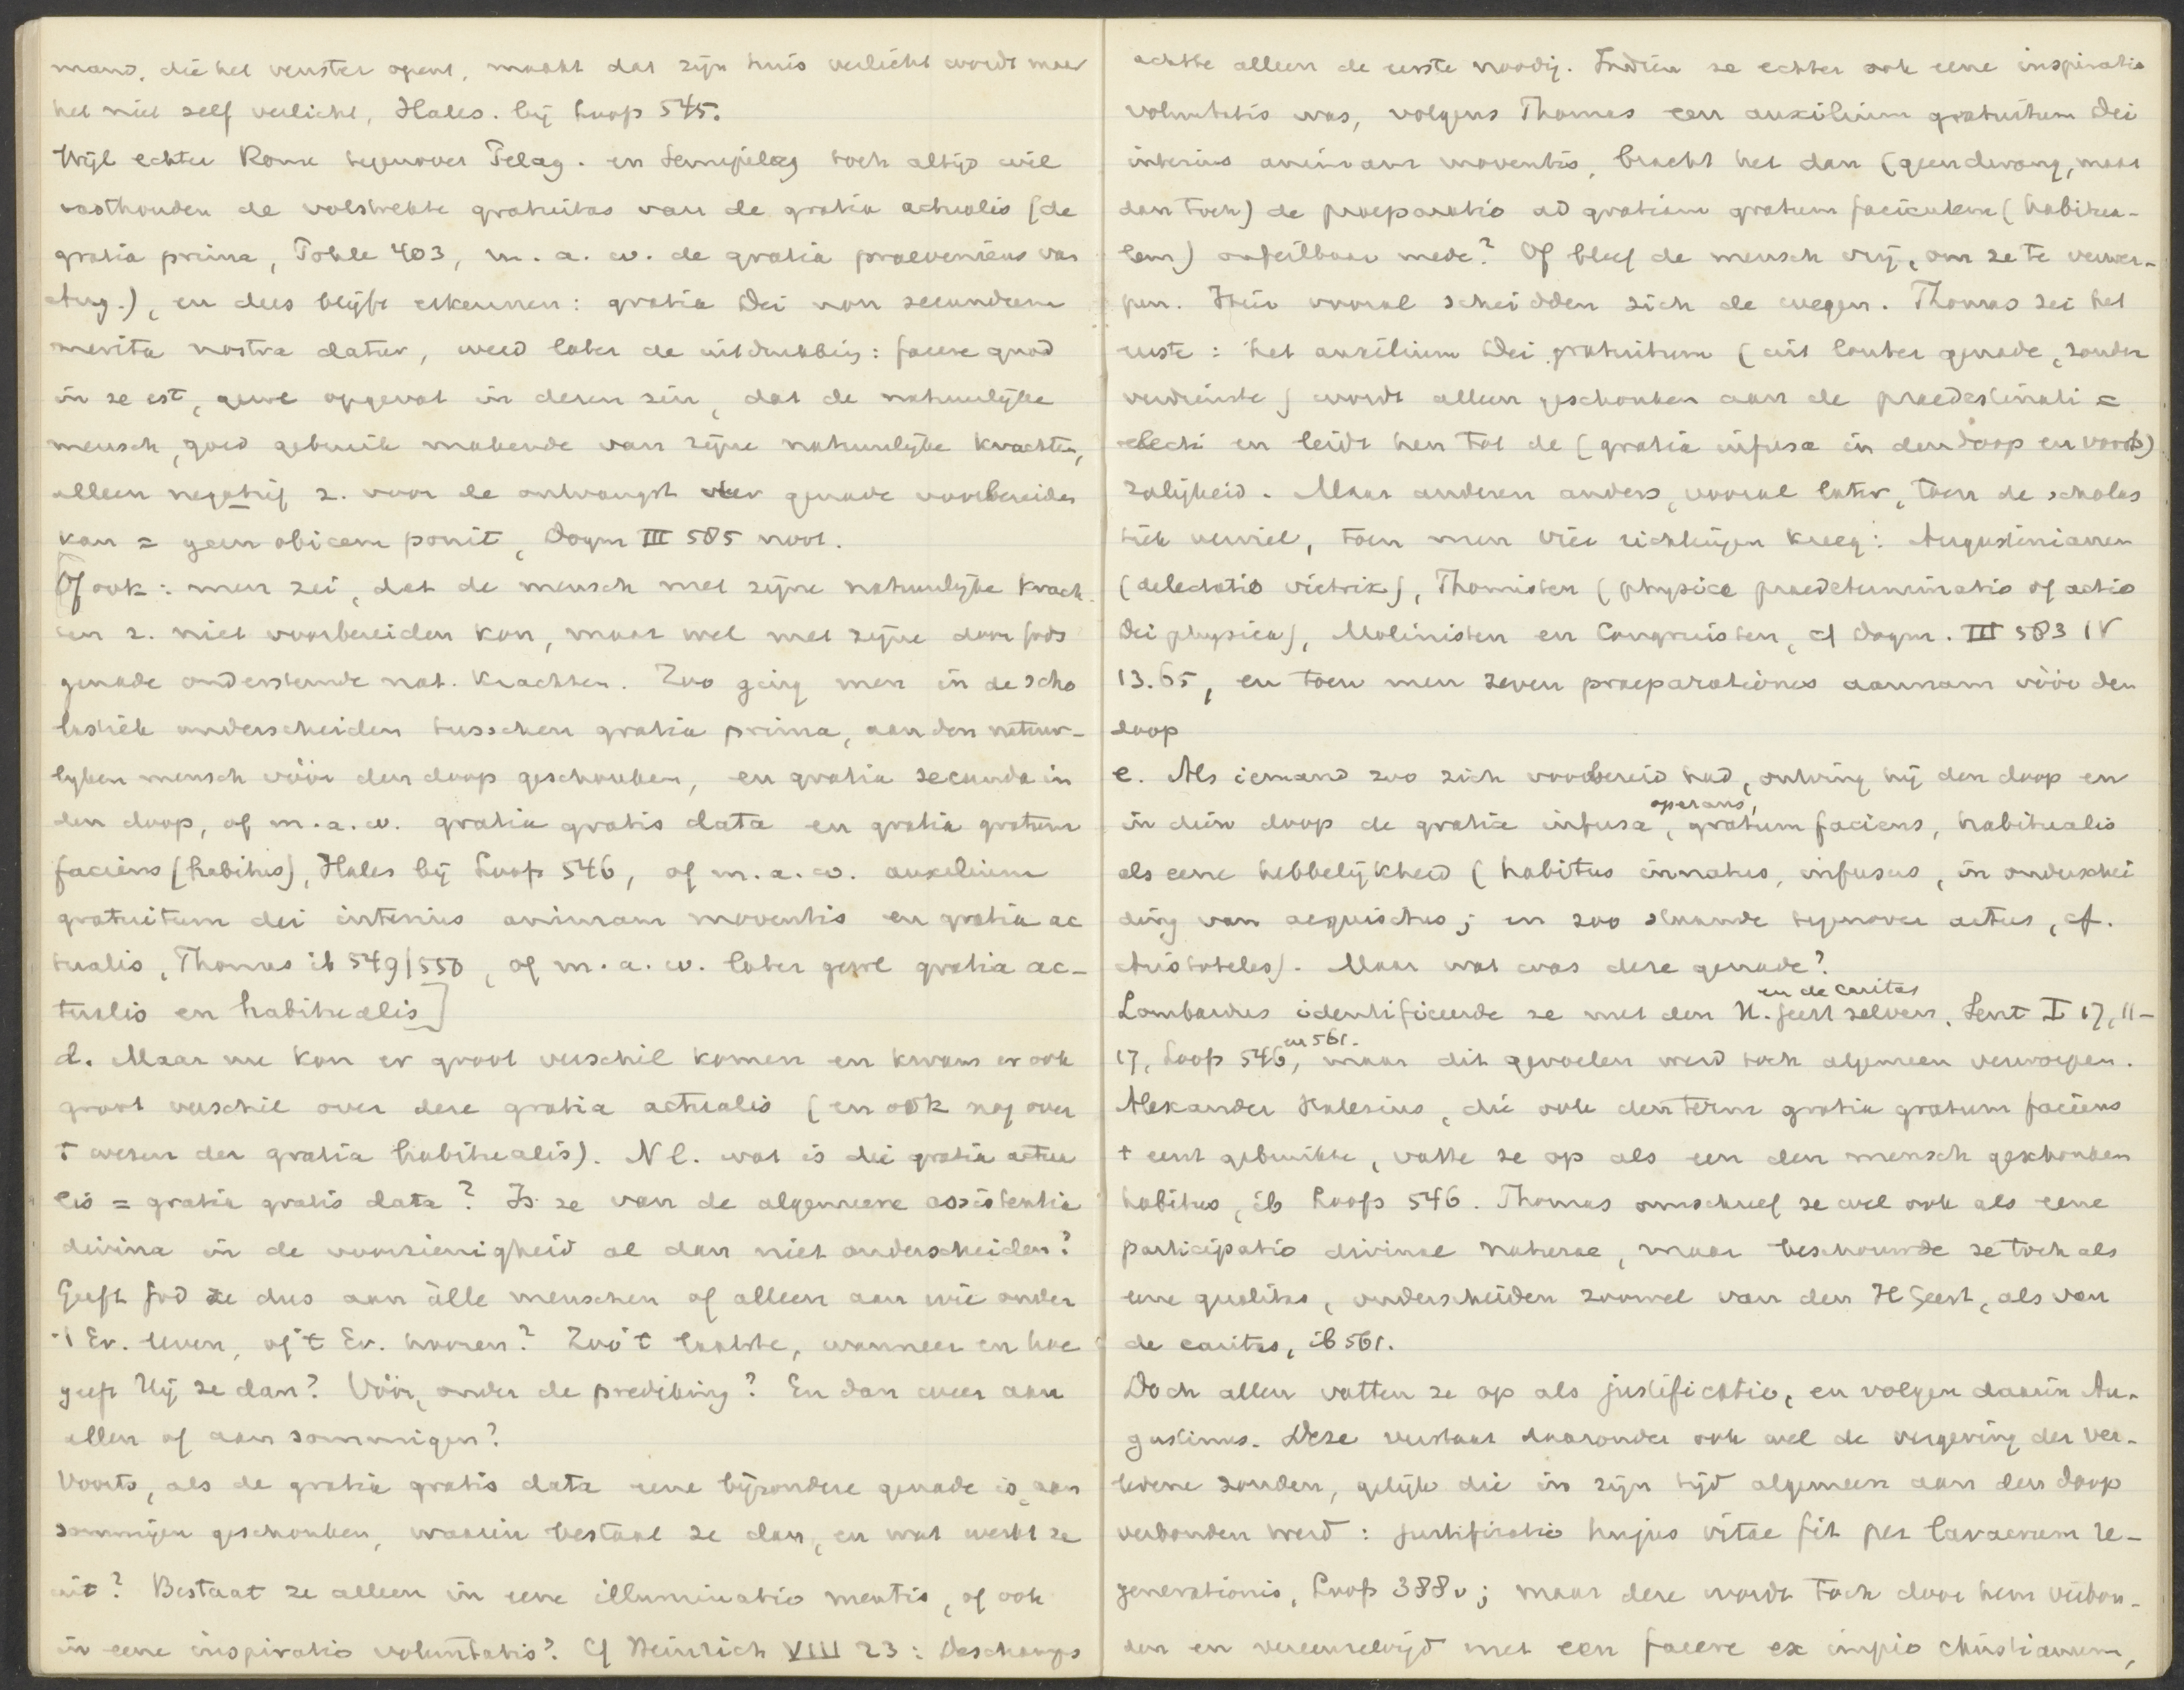 mand, die het venster opent, maakt dat zijn huis verlicht wordt maar
het niet zelf verlicht, Hales. bij Loofs 545.
Wijl echter Rome tegenover Pelag. en Semipelag toch altijd wil
vasthouden de volstrekte gratuitas van de gratia actualis (de
gratia prima, Pohle 403, m. a. w. de gratia praeveniens van
Aug.), en dus blijft erkennen: gratia Dei non secundum
merita nostra datur, werd later de uitdrukking: facere quod
in se est, gewl opgevat in dezen zin, dat de natuurlijke
mensch, goed gebruik makende van zijne natuurlijke krachten,
alleen negatief z. voor de ontvangst der genade voorbereiden
kan = geen obicem ponit, Dogm III 585 noot.
Of ook: men zei, dat de mensch met zijne natuurlijke krach-
ten z. niet voorbereiden kan, maar wel met zijne door Gods
genade ondersteunde nat. krachten. Zoo ging men in de scho
lastiek onderscheiden tusschen gratia prima, aan den natuur-
lijken mensch vóór den doop geschonken, en gratia secunda in
den doop, of m.a.w. gratia gratis data en gratia gratum
faciens (habitus), Hales bij Loofs 546, of m.a.w. auxilium
gratuitum dei interius animam moventis en gratia ac
tualis, Thomas ib 549/550, of m.a.w. later gewl gratia ac-
tualis en habitualis]
d. Maar nu kon er groot verschil komen en kwam er ook
groot verschil over deze gratia actualis (en ook nog over
't wezen der gratia habitualis). Nl. wat is die gratia actua
lis = gratia gratis data? Is ze van de algemeene assistentia
divina in de voorzienigheid al dan niet onderscheiden?
Geeft God ze dus aan álle menschen of alleen aan wie onder
't Ev. leven, of 't Ev. hooren? Zoo 't laatste, wanneer en hoe
geeft Hij ze dan? Vóór, onder de prediking? En dan weer aan
allen of aan sommigen?
Voorts, als de gratia gratis data eene bijzondere genade is, aan
sommigen geschonken, waarin bestaat ze dan, en wat werkt ze
uit? Bestaat ze alleen in eene illuminatio mentis, of ook
in eene inspiratio voluntatis? Cf Heinrich VIII 23: Deschamps
achtte alleen de eerste noodig. Indien ze echter ook eene inspiratio
voluntatis was, volgens Thomas een auxilium gratuitum Dei
interius animam moventis, bracht het dan (geen dwang, maar
dan toch) de praeparatio ad gratiam gratum facientem (habitua-
lem) onfeilbaar mede? Of bleef de mensch vrij, om ze te verwer-
pen. Hier vooral scheidden zich de wegen. Thomas zei het
eerste: het auxilium Dei gratuitum (uit louter genade, zonder
verdienste) wordt alleen geschonken aan de praedestinati =
electi en leidt hen tot de (gratia infusa in den doop en voorts)
zaligheid. Maar anderen anders, vooral later, toen de scholas
tiek verviel, toen men vier richtingen kreeg: Augustinianen
(delectatio victrix), Thomisten (physica praedeterminatio of actio
Dei physica), Molinisten en Congruisten, cf Dogm. III 583 IV
13.65, en toen men zeven praeparationes aannam vóór den
doop
e. Als iemand zoo zich voorbereid had, ontving hij den doop en
in dien doop de gratia infusa, operans, gratum faciens, habitualis
als eene hebbelijkheid (habitus innatus, infusus, in onderschei
ding van acquisitus; en zoo staande tegenover actus, cf.
Aristoteles). Maar wat was deze genade?
Lombardus identificeerde ze met den H. Geest zelven en de caritas, Sent I 17, 11-
17, Loofs 546, en 561. maar dit gevoelen werd toch algemeen verworpen.
Alexander Halesius, die ook den term gratia gratum faciens
't eerst gebruikte, vatte ze op als een den mensch geschonken
habitus, ib Loofs 546. Thomas omschreef ze wel ook als eene
participatio divinae naturae, maar beschouwde ze toch als
eene qualitas, onderscheiden zoowel van den H Geest, als van
de caritas, ib 561.
Doch allen vatten ze op als justificatio, en volgen daarin Au-
gustinus. Deze verstaat daaronder ook wel de vergeving der ver-
ledene zonden, gelijk die in zijn tijd algemeen aan den doop
verbonden werd: justificatio hujus vitae fit per lavacrum re-
generationis, Loofs 388v; maar deze wordt toch door hem verbon-
den en vereenzelvigd met een facere ex impio christianum,